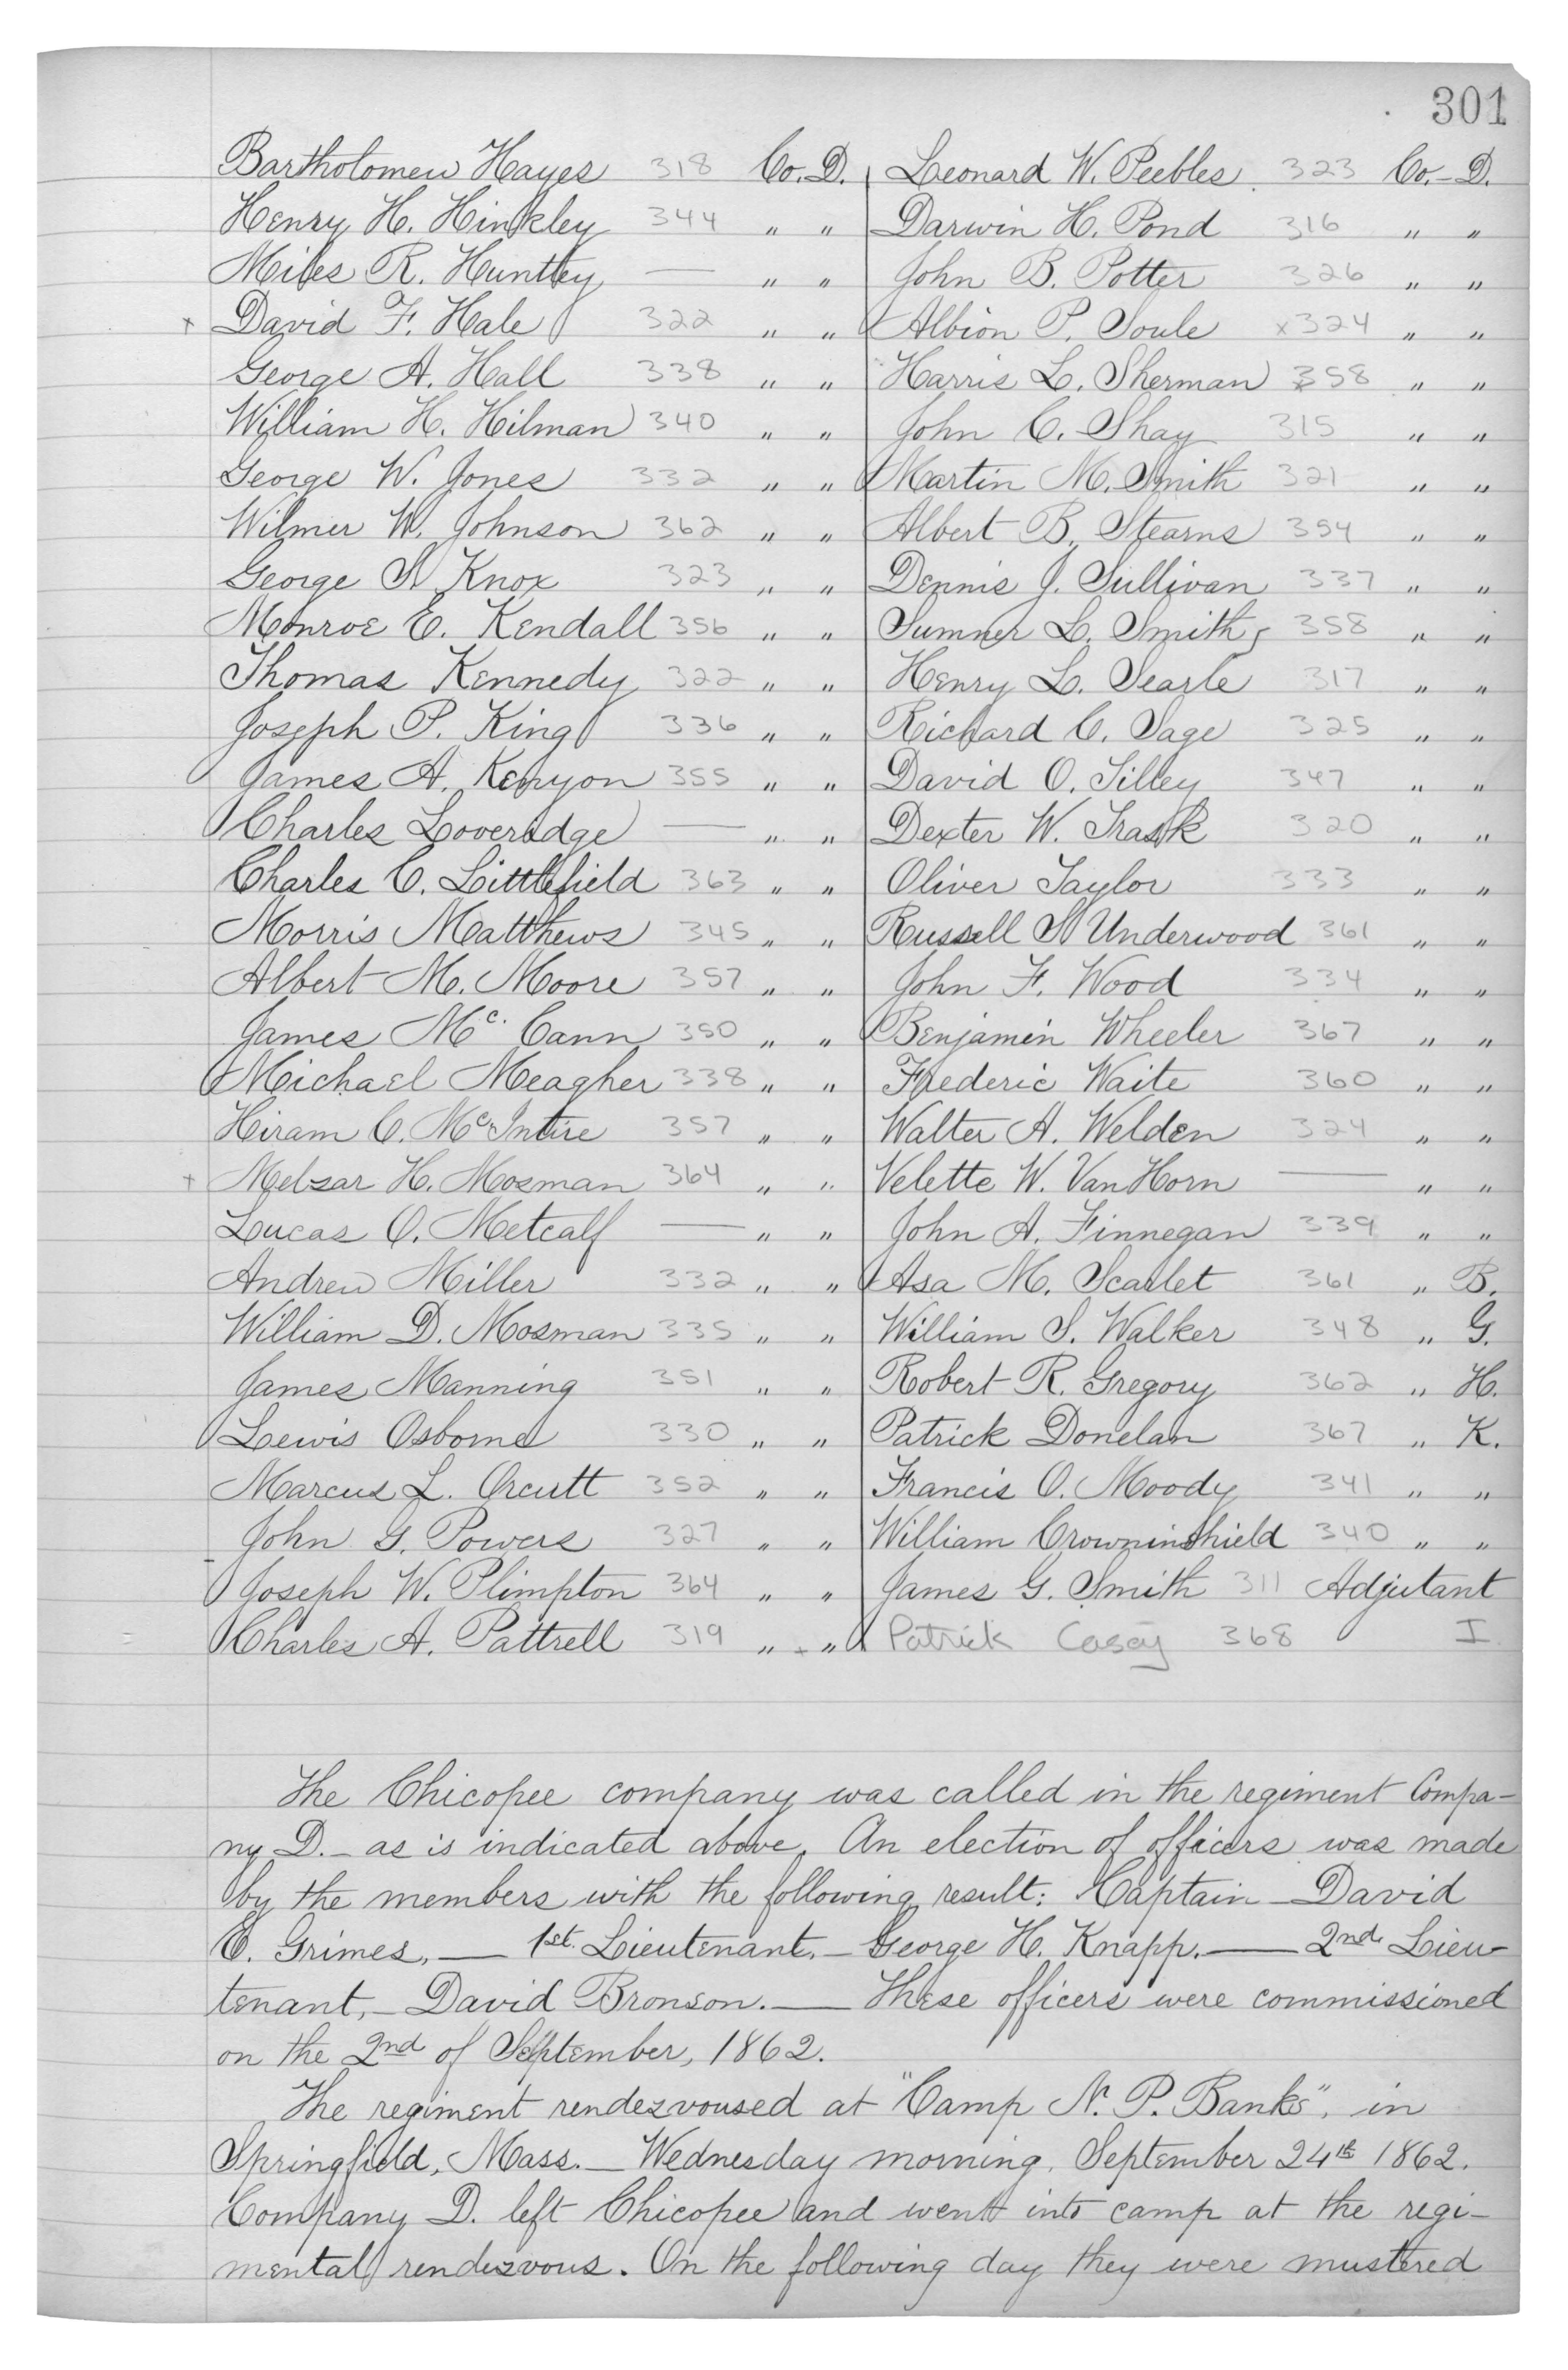 301
Bartholomew Hayes 318 Co. D.
Henry H. Hinkley 344 " "
Miles R. Huntley — " "
x David F. Hale 322 " "
George A. Hall 338 " "
William H. Hilman 340 " "
George W. Jones 332 " "
Wilmer W. Johnson 362 " "
George S. Knox 323 " "
Monroe E. Kendall 356 " "
Thomas Kennedy 322 " "
Joseph P. King 336 " "
James A. Kenyon 355 " "
Charles Loveridge — " "
Charles C. Littlefield 363 " "
Morris Matthews 345 " "
Albert M. Moore 357 " "
James Mc. Cann 350 " "
Michael Meagher 338 " "
Hiram C. McIntire 357 " "
+ Melzar H. Mosman 364 " "
Lucas O. Metcalf — " "
Andrew Miller 332 " "
William D. Mosman 335 " "
James Manning 351 " "
Lewis Osborne 330 " "
Marcus L. Orcutt 352 " "
John G. Powers 327 " "
Joseph W. Plimpton 364 " "
Charles A. Pattrell 319 " "
Leonard W. Peebles 323 Co.- D.
Darwin H. Pond 316 " "
John B. Potter 326 " "
Albion P. Soule x 324 " "
Harris L. Sherman 358 " "
John C. Shay 315 " "
Martin M. Smith 321 " "
Albert B. Stearns 354 " "
Dennis J. Sullivan 337 " "
Sumner L. Smith 358 " "
Henry L. Searle 317 " "
Richard C. Sage 325 " "
David O. Tilley 347 " "
Dexter W. Trask 320 " "
Oliver Taylor 333 " "
Russell S. Underwood 361 " "
John F. Wood 334 " "
Benjamin Wheeler 367 " "
Frederic Waite 360 " "
Walter A. Welden 324 " "
Velette W. Van Horn — " "
John A. Finnegan 339 " "
Asa M. Scarlet 361 " B.
William S. Walker 348 " G.
Robert R. Gregory 362 " H.
Patrick Donelan 367 " K.
Francis O. Moody 341 " "
William Crowninshield 340 " "
James G. Smith 311 Adjutant
+ Patrick Casey 368 I
The Chicopee company was called in the regiment Compa-
ny D.- as is indicated above. An election of officers was made
by the members with the following result: Captain - David
E. Grimes, — 1st. Lieutenant, - George H. Knapp. — 2nd. Lieu-
tenant, - David Bronson. — These officers were commissioned
on the 2nd of September, 1862.
The regiment rendezvoused at "Camp N. P. Banks", in
Springfield, Mass. — Wednesday morning, September 24th 1862.
Company D. left Chicopee and went into camp at the regi-
mental rendezvous. On the following day they were mustered